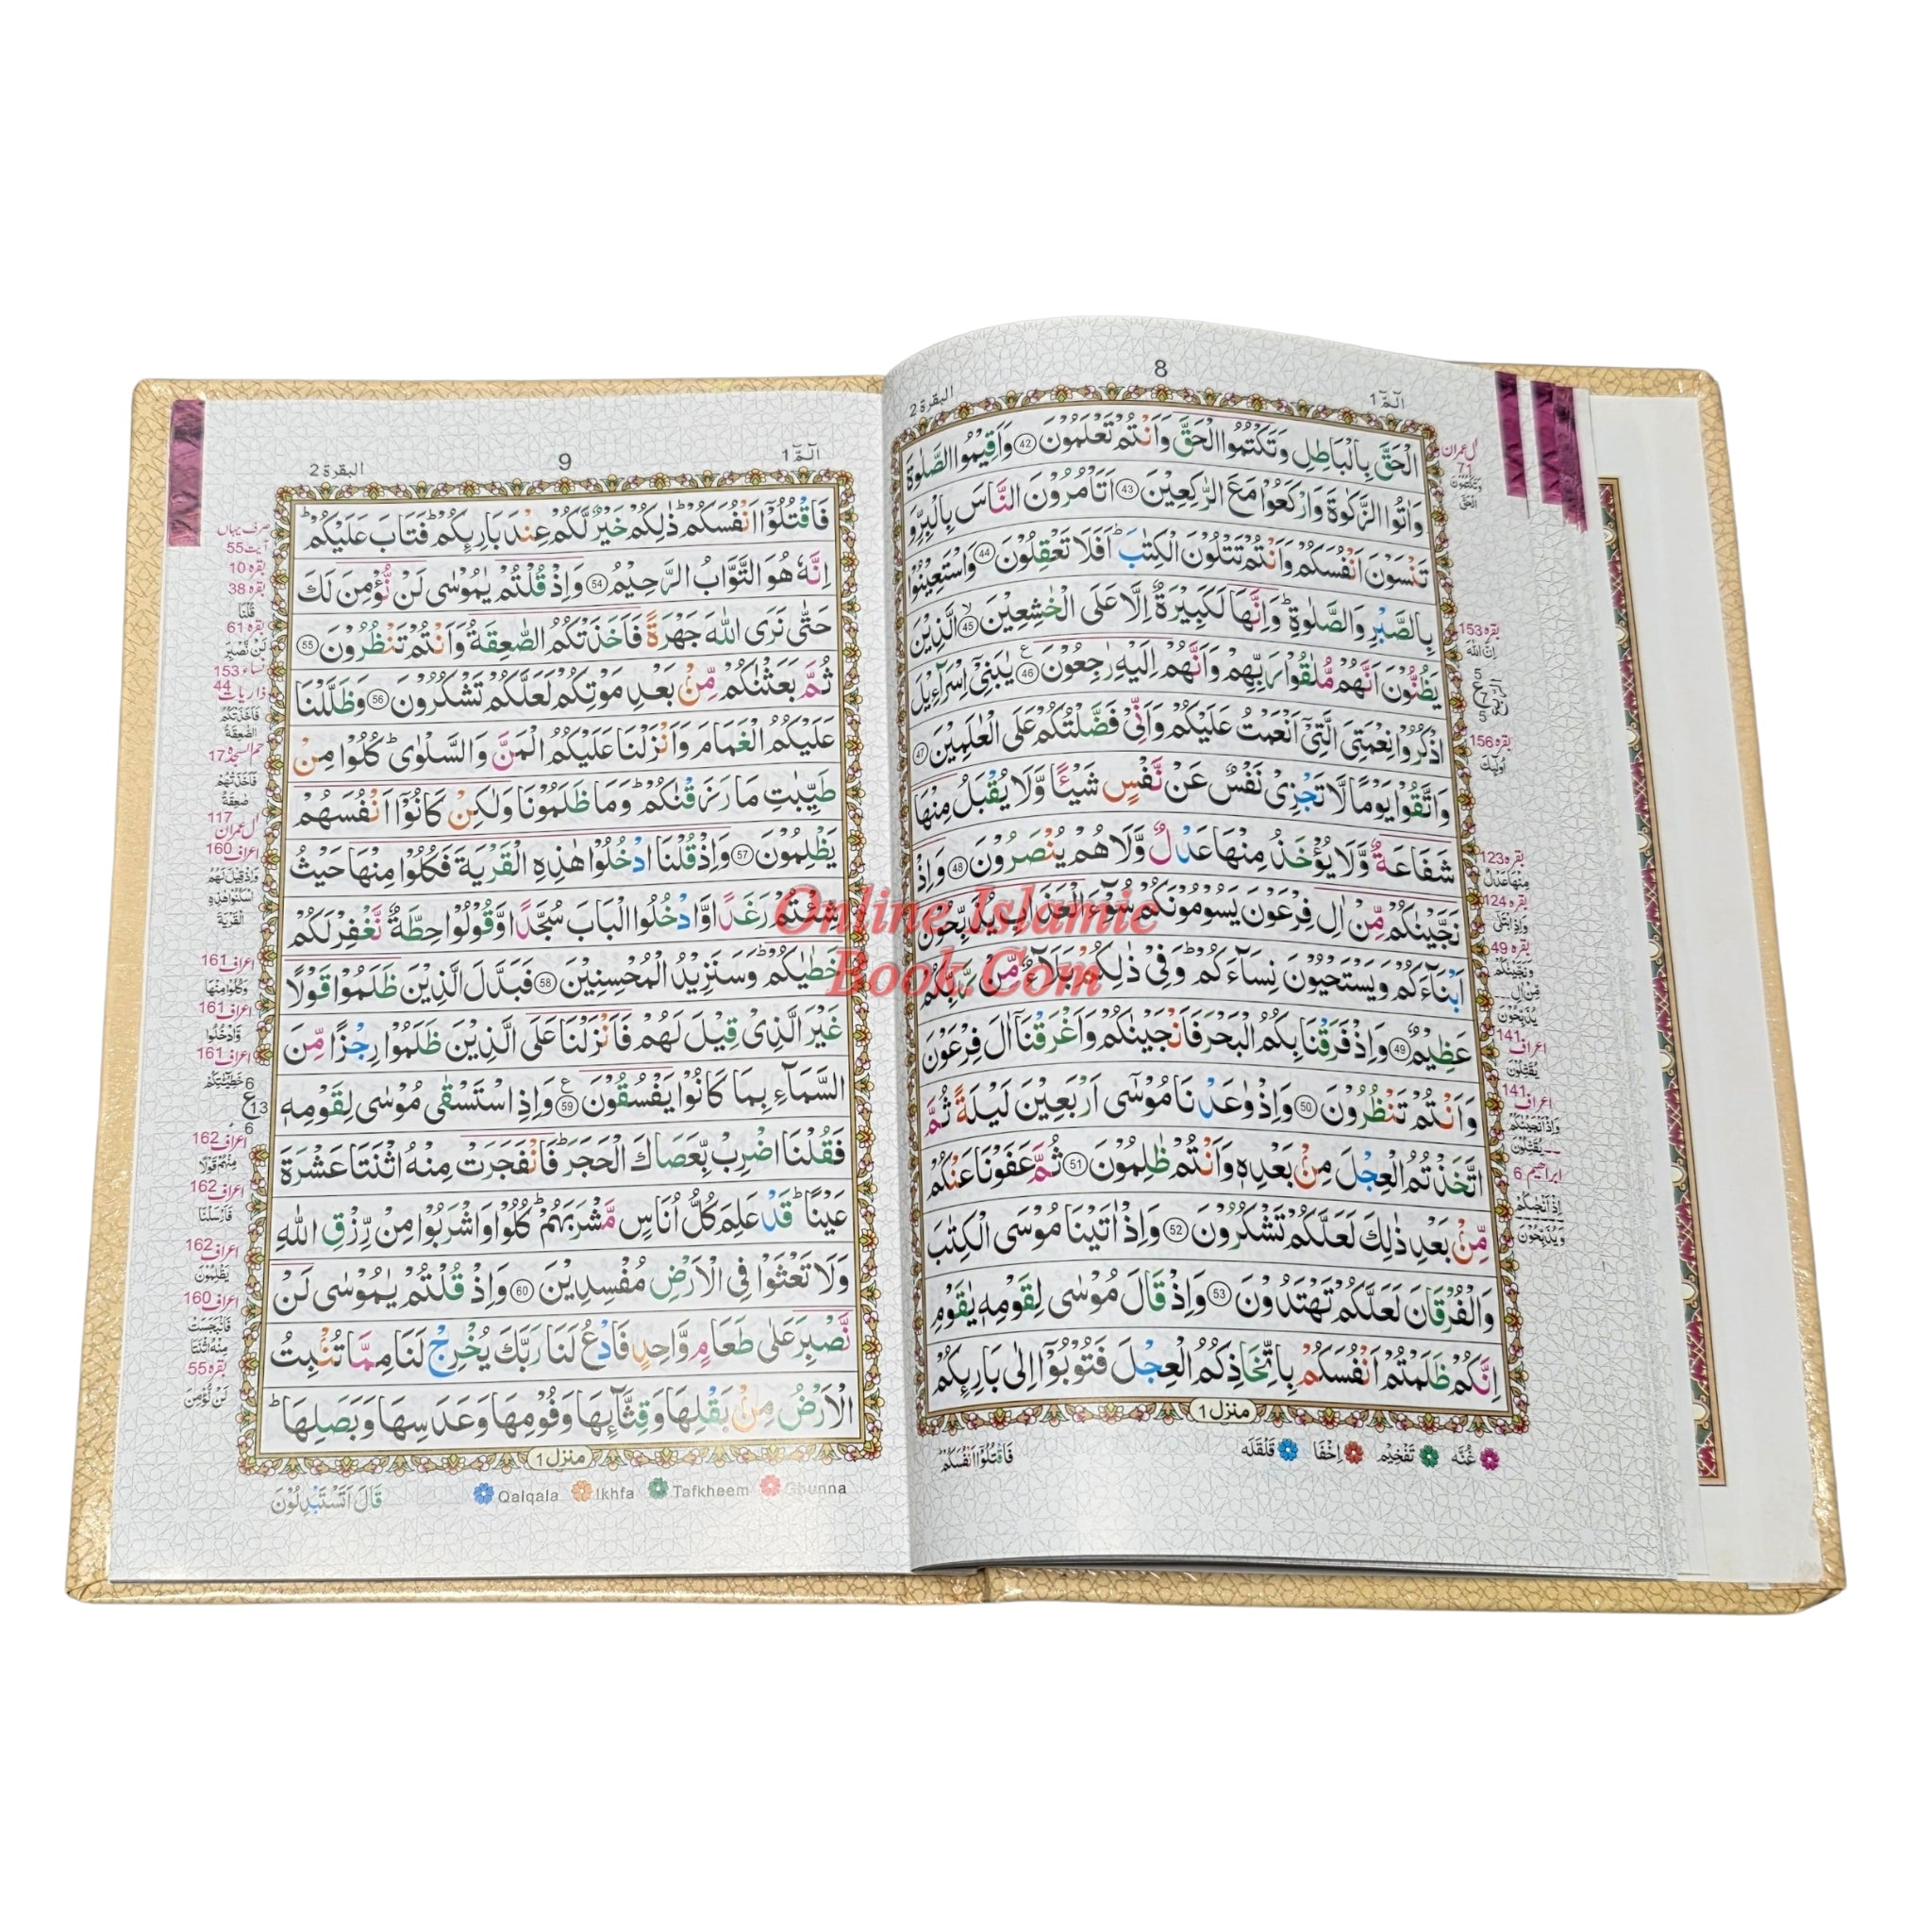 8
الٓمّٓ 1
البقرة 2
الْحَقَّ بِالْبَاطِلِ وَتَكْتُمُوا الْحَقَّ وَاَنْتُمْ تَعْلَمُوْنَ 42 وَاَقِيْمُوا الصَّلٰوةَ
وَاٰتُوا الزَّكٰوةَ وَارْكَعُوْا مَعَ الرّٰكِعِيْنَ 43 اَتَاْمُرُوْنَ النَّاسَ بِالْبِرِّ وَ
تَنْسَوْنَ اَنْفُسَكُمْ وَاَنْتُمْ تَتْلُوْنَ الْكِتٰبَ ؕ اَفَلَا تَعْقِلُوْنَ 44 وَاسْتَعِيْنُوْا
بِالصَّبْرِ وَالصَّلٰوةِ ؕ وَاِنَّهَا لَكَبِيْرَةٌ اِلَّا عَلَى الْخٰشِعِيْنَ 45 الَّذِيْنَ
يَظُنُّوْنَ اَنَّهُمْ مُّلٰقُوْا رَبِّهِمْ وَاَنَّهُمْ اِلَيْهِ رٰجِعُوْنَ 46 يٰبَنِيْٓ اِسْرَآءِيْلَ
اذْكُرُوْا نِعْمَتِيَ الَّتِيْٓ اَنْعَمْتُ عَلَيْكُمْ وَاَنِّيْ فَضَّلْتُكُمْ عَلَى الْعٰلَمِيْنَ 47
وَاتَّقُوْا يَوْمًا لَّا تَجْزِيْ نَفْسٌ عَنْ نَّفْسٍ شَيْـًٔا وَّلَا يُقْبَلُ مِنْهَا
شَفَاعَةٌ وَّلَا يُؤْخَذُ مِنْهَا عَدْلٌ وَّلَا هُمْ يُنْصَرُوْنَ 48 وَاِذْ
نَجَّيْنٰكُمْ مِّنْ اٰلِ فِرْعَوْنَ يَسُوْمُوْنَكُمْ سُوْٓءَ الْعَذَابِ يُذَبِّحُوْنَ
اَبْنَآءَكُمْ وَيَسْتَحْيُوْنَ نِسَآءَكُمْ ؕ وَفِيْ ذٰلِكُمْ بَلَآءٌ مِّنْ رَّبِّكُمْ
عَظِيْمٌ 49 وَاِذْ فَرَقْنَا بِكُمُ الْبَحْرَ فَاَنْجَيْنٰكُمْ وَاَغْرَقْنَآ اٰلَ فِرْعَوْنَ
وَاَنْتُمْ تَنْظُرُوْنَ 50 وَاِذْ وٰعَدْنَا مُوْسٰٓى اَرْبَعِيْنَ لَيْلَةً ثُمَّ
اتَّخَذْتُمُ الْعِجْلَ مِنْۢ بَعْدِهٖ وَاَنْتُمْ ظٰلِمُوْنَ 51 ثُمَّ عَفَوْنَا عَنْكُمْ
مِّنْۢ بَعْدِ ذٰلِكَ لَعَلَّكُمْ تَشْكُرُوْنَ 52 وَاِذْ اٰتَيْنَا مُوْسَى الْكِتٰبَ
وَالْفُرْقَانَ لَعَلَّكُمْ تَهْتَدُوْنَ 53 وَاِذْ قَالَ مُوْسٰى لِقَوْمِهٖ يٰقَوْمِ
اِنَّكُمْ ظَلَمْتُمْ اَنْفُسَكُمْ بِاتِّخَاذِكُمُ الْعِجْلَ فَتُوْبُوْٓا اِلٰى بَارِئِكُمْ
منزل 1
غُنَّه تَفْخِيْم اِخْفَا قَلْقَلَه
فَاقْتُلُوْٓا اَنْفُسَكُمْ
اٰل عمران
71
وَتَكْتُمُوْنَ
الْحَقَّ
بقره 153
اِنَّ اللّٰهَ
5
ع
5
بقره 156
اُولٰٓئِكَ
بقره 123
مِنْهَا عَدْلٌ
بقره 124
وَاِذِ ابْتَلٰٓى
بقره 49
وَنَجَّيْنٰكُمْ
مِّنْ اٰلِ
يُذَبِّحُوْنَ
اعراف 141
يُقَتِّلُوْنَ
اعراف 141
وَاِذْ اَنْجَيْنٰكُمْ
يُقَتِّلُوْنَ
ابراهيم 6
اِذْ اَنْجٰكُمْ
وَيُذَبِّحُوْنَ
9
الٓمّٓ 1
البقرة 2
فَاقْتُلُوْٓا اَنْفُسَكُمْ ؕ ذٰلِكُمْ خَيْرٌ لَّكُمْ عِنْدَ بَارِئِكُمْ ؕ فَتَابَ عَلَيْكُمْ ؕ
اِنَّهٗ هُوَ التَّوَّابُ الرَّحِيْمُ 54 وَاِذْ قُلْتُمْ يٰمُوْسٰى لَنْ نُّؤْمِنَ لَكَ
حَتّٰى نَرَى اللّٰهَ جَهْرَةً فَاَخَذَتْكُمُ الصّٰعِقَةُ وَاَنْتُمْ تَنْظُرُوْنَ 55
ثُمَّ بَعَثْنٰكُمْ مِّنْۢ بَعْدِ مَوْتِكُمْ لَعَلَّكُمْ تَشْكُرُوْنَ 56 وَظَلَّلْنَا
عَلَيْكُمُ الْغَمَامَ وَاَنْزَلْنَا عَلَيْكُمُ الْمَنَّ وَالسَّلْوٰى ؕ كُلُوْا مِنْ
طَيِّبٰتِ مَا رَزَقْنٰكُمْ ؕ وَمَا ظَلَمُوْنَا وَلٰكِنْ كَانُوْٓا اَنْفُسَهُمْ
يَظْلِمُوْنَ 57 وَاِذْ قُلْنَا ادْخُلُوْا هٰذِهِ الْقَرْيَةَ فَكُلُوْا مِنْهَا حَيْثُ
شِئْتُمْ رَغَدًا وَّادْخُلُوا الْبَابَ سُجَّدًا وَّقُوْلُوْا حِطَّةٌ نَّغْفِرْ لَكُمْ
خَطٰيٰكُمْ ؕ وَسَنَزِيْدُ الْمُحْسِنِيْنَ 58 فَبَدَّلَ الَّذِيْنَ ظَلَمُوْا قَوْلًا
غَيْرَ الَّذِيْ قِيْلَ لَهُمْ فَاَنْزَلْنَا عَلَى الَّذِيْنَ ظَلَمُوْا رِجْزًا مِّنَ
السَّمَآءِ بِمَا كَانُوْا يَفْسُقُوْنَ 59 وَاِذِ اسْتَسْقٰى مُوْسٰى لِقَوْمِهٖ
فَقُلْنَا اضْرِبْ بِّعَصَاكَ الْحَجَرَ ؕ فَانْفَجَرَتْ مِنْهُ اثْنَتَا عَشْرَةَ
عَيْنًا ؕ قَدْ عَلِمَ كُلُّ اُنَاسٍ مَّشْرَبَهُمْ ؕ كُلُوْا وَاشْرَبُوْا مِنْ رِّزْقِ اللّٰهِ
وَلَا تَعْثَوْا فِي الْاَرْضِ مُفْسِدِيْنَ 60 وَاِذْ قُلْتُمْ يٰمُوْسٰى لَنْ
نَّصْبِرَ عَلٰى طَعَامٍ وَّاحِدٍ فَادْعُ لَنَا رَبَّكَ يُخْرِجْ لَنَا مِمَّا تُنْۢبِتُ
الْاَرْضُ مِنْۢ بَقْلِهَا وَقِثَّآئِهَا وَفُوْمِهَا وَعَدَسِهَا وَبَصَلِهَا ؕ
منزل 1
Qalqala Ikhfa Tafkheem Ghunna
قَالَ اَتَسْتَبْدِلُوْنَ
صرف يہاں
آيت 55
بقره 10
بقره 38
قُلْنَا
بقره 61
لَنْ نَّصْبِرَ
نساء 153
ذاريات 44
فَاَخَذَتْهُمُ
الصّٰعِقَةُ
حم السجده 17
فَاَخَذَتْهُمْ
صٰعِقَةُ
اٰل عمران 117
اعراف 160
وَاِذْ قِيْلَ لَهُمُ
اسْكُنُوْا هٰذِهِ
الْقَرْيَةَ
اعراف 161
وَكُلُوْا مِنْهَا
اعراف 161
وَّادْخُلُوا
اعراف 161
خَطِيْٓـٰٔتِكُمْ
6
ع 13
6
اعراف 162
مِنْهُمْ قَوْلًا
اعراف 162
فَاَرْسَلْنَا
اعراف 162
يَظْلِمُوْنَ
اعراف 160
فَانْۢبَجَسَتْ
مِنْهُ اثْنَتَا
بقره 55
لَنْ نُّؤْمِنَ
Online Islamic
Book.Com